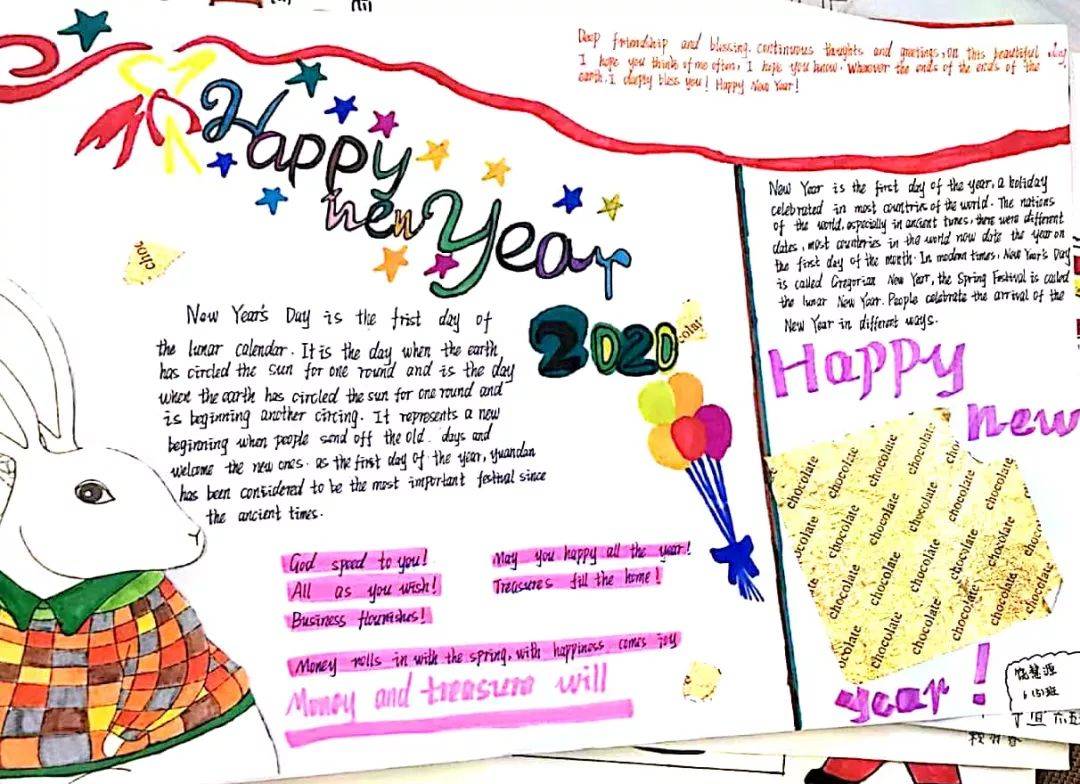 Deep friendship and blissing, continuous thoughts and greetings, on this beautiful day,
I hope you think of me often, I hope you know. Wherever the ends of the ends of the
earth, i deeply bless you! Happy New Year!
Happy
new Year
2020
New Year is the first day of the year, a holiday
celebrated in most countries of the world. The nations
of the world, especially in ancient times, there were different
dates, most counteries in the world now date the year on
the first day of the month. In modern times, New Year's Day
is called Gregorian New Year, the Spring Festival is called
the lunar New Year. People celebrate the arrival of the
New Year in different ways.
Happy
New
year!
choc
colat
New Year's Day is the frist day of
the lunar calendar. It is the day when the earth
has circled the sun for one round and is the day
when the earth has circled the sun for one round and
is beginning another circing. It represents a new
beginning when people send off the old. days and
welcome the new ones. as the first day of the year, yuandan
has been considered to be the most important festival since
the ancient times.
God speed to you!
All as you wish!
Business flourishes!
May you happy all the year!
Treasures fill the home!
Money rolls in with the spring, with happiness comes joy
Money and treasure will
chocolate chocolate chocolate chocolate
chocolate chocolate chocolate chocolate
chocolate chocolate chocolate chocolate
chocolate chocolate chocolate
6(5)班